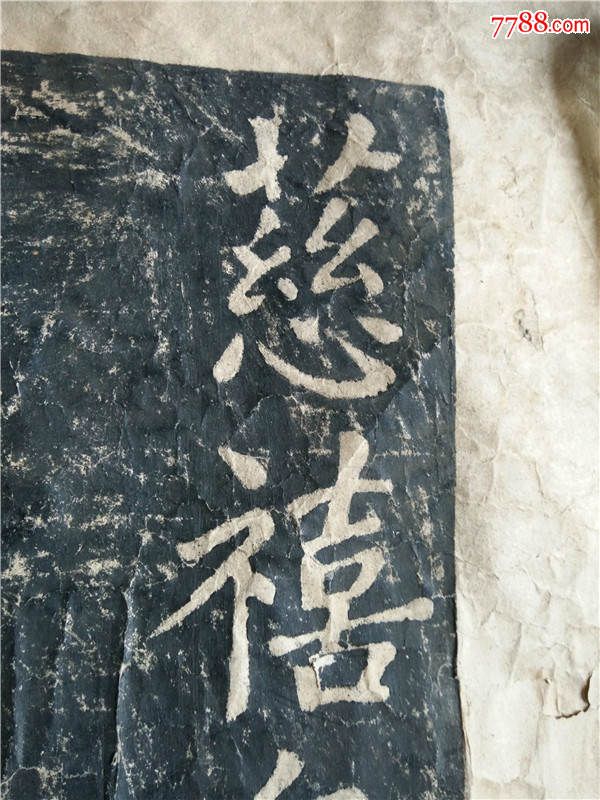 7788.com
慈禧